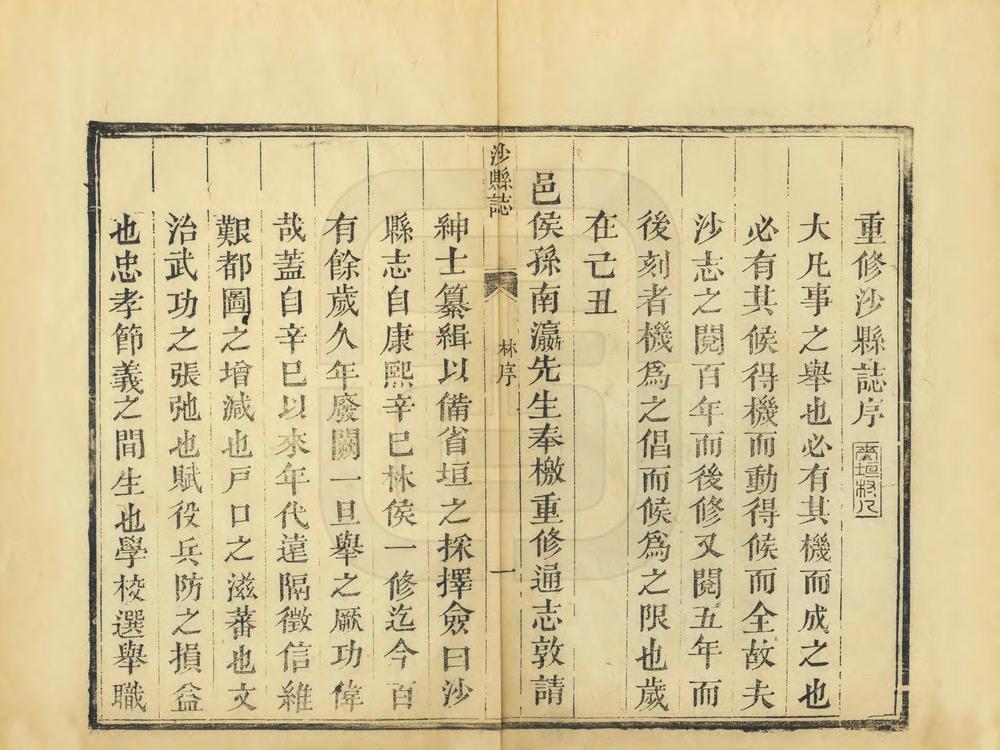 重修沙縣誌序
大凡事之舉也必有其機而成之也
必有其候得機而動得候而全故夫
沙志之閱百年而後修又閱五年而
後刻者機爲之倡而候爲之限也歲
在己丑
邑侯孫南瀛先生奉檄重修通志敦請
沙縣誌
林序
一
紳士纂緝以備省垣之採擇僉曰沙
縣志自康熙辛巳林侯一修迄今百
有餘歲久年廢闕一旦舉之厥功偉
哉蓋自辛巳以來年代遠隔徵信維
艱都圖之增減也戸口之滋蕃也文
治武功之張弛也賦役兵防之損益
也忠孝節義之間生也學校選舉職